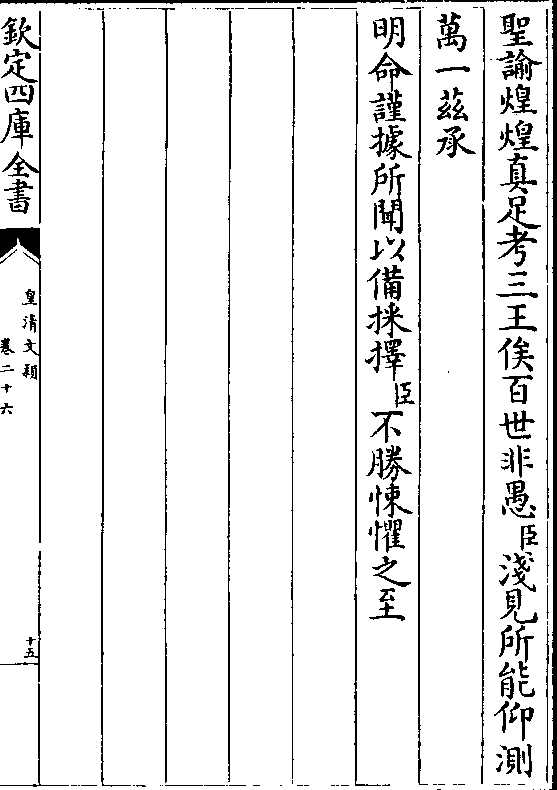 聖諭煌煌真足考三王俟百世非愚臣淺見所能仰測
萬一茲承
明命謹據所聞以備採擇臣不勝悚懼之至
欽定四庫全書
皇清文穎
卷二十六
十五